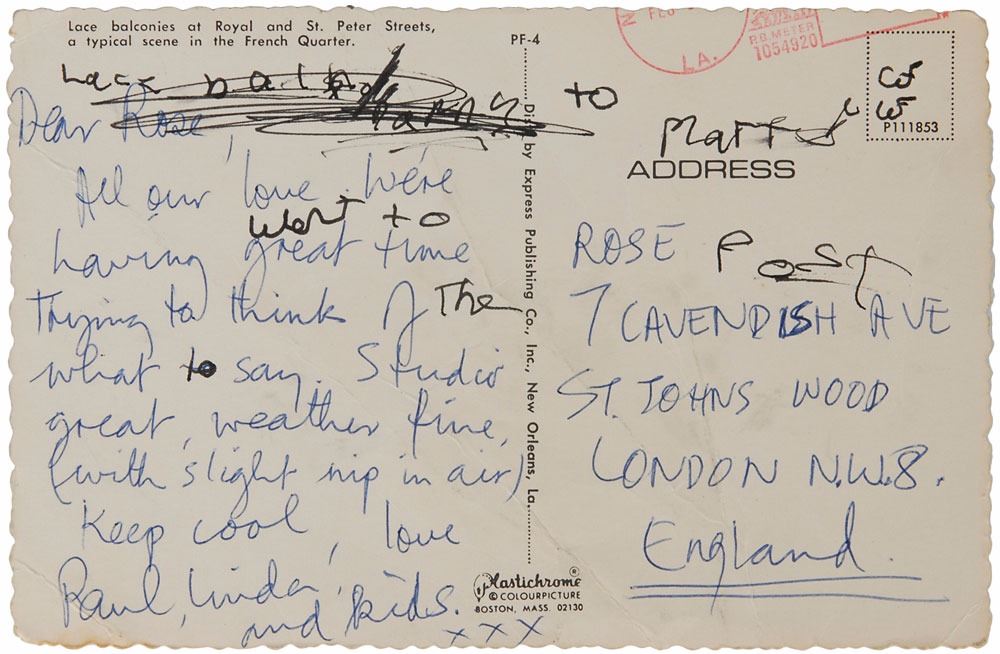 Lace balconies at Royal and St. Peter Streets,
a typical scene in the French Quarter.
PF-4
FEB
LA.
P.B. METER
1054920
P111853
Lace
to
Dear Rose,
All our love. We're
went to
having great time
Trying to think of The
what to say. Studio
great, weather fine,
(with slight nip in air)
Keep cool, love
Paul, Linda,
and kids.
x x x
Dist. by Express Publishing Co., Inc., New Orleans, La.
ADDRESS
ROSE Post
7 CAVENDISH AVE
ST. JOHNS WOOD
LONDON N.W.8.
England.
Plastichrome®
© COLOURPICTURE
BOSTON, MASS. 02130